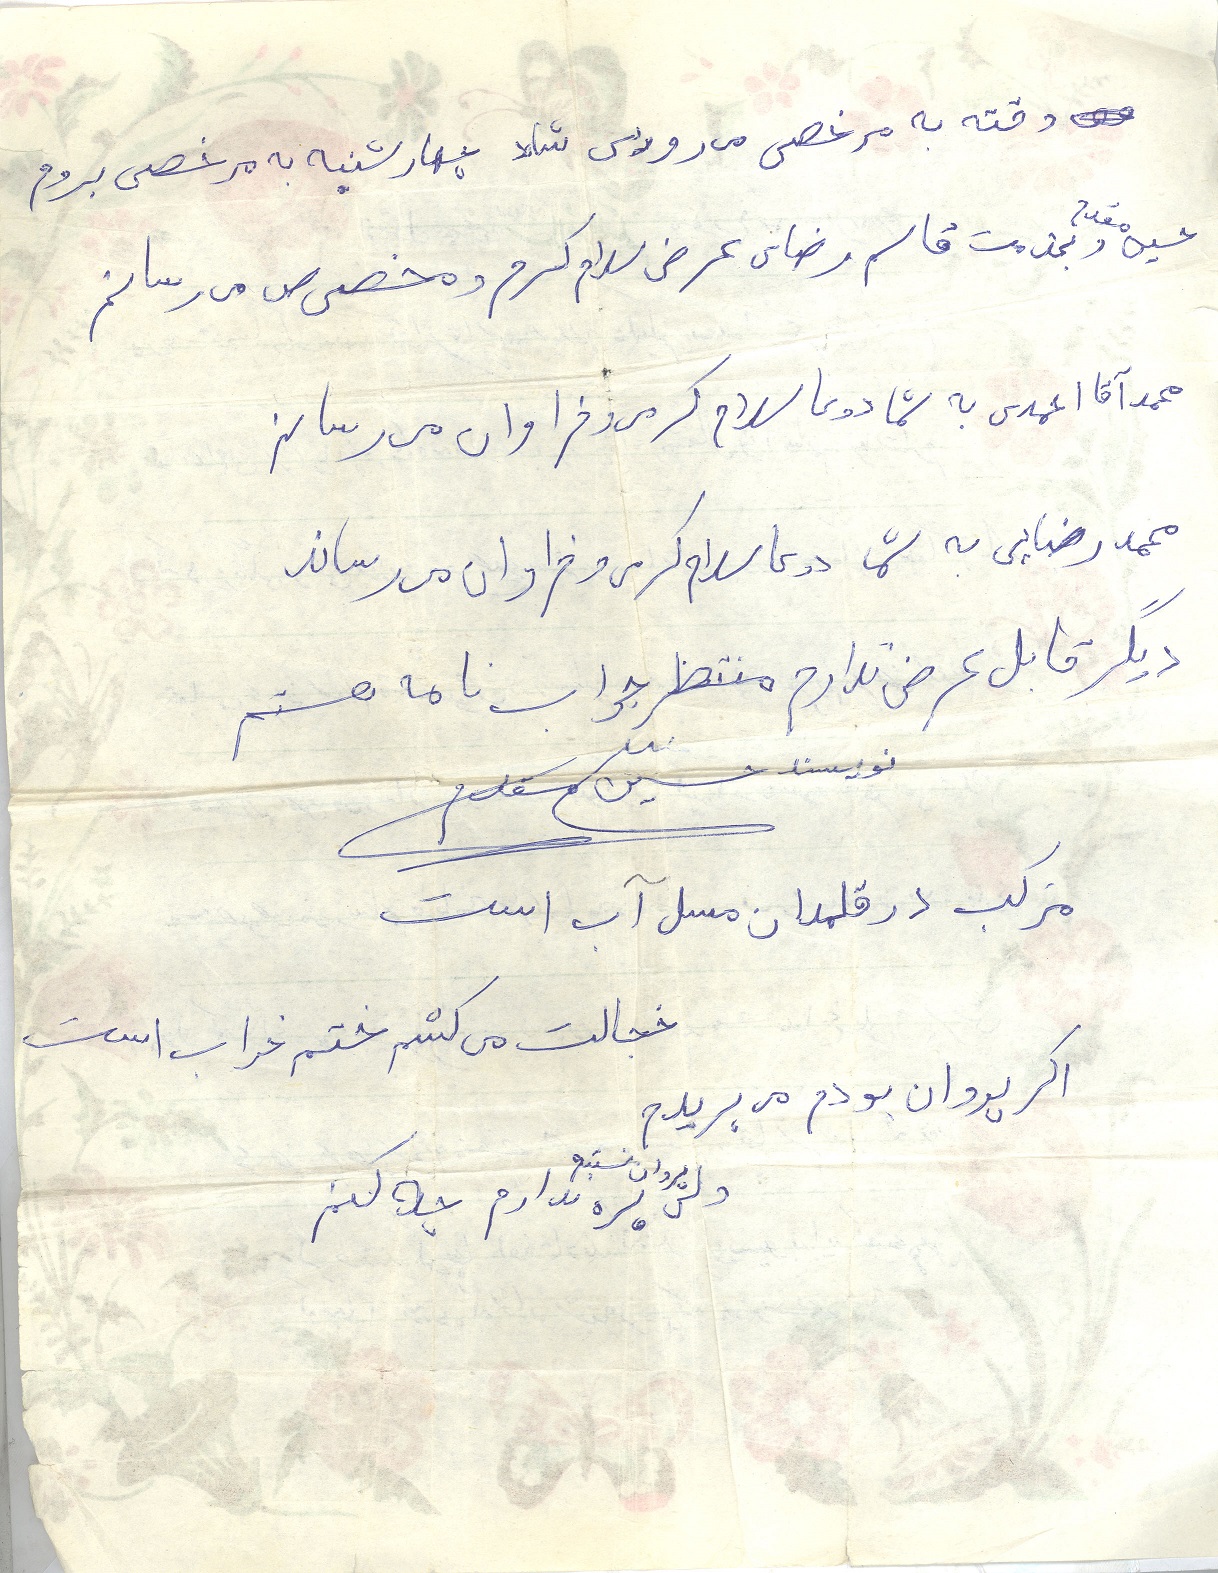 وقته به مرخصی می روی شاد چهارشنبه به مرخصی بروم
مقدم
حسین و بخدمت قاسم رضای عرض سلام گرم و مخصوص می رسانم
محمد آقا احمدی به شما دوعا سلام گرمی و فراوان می رسانم
محمد رضایی به شما دوعا سلام گرمی و فراوان می رساند
دیگر قابل عرض ندارم منتظر جواب نامه هستم
نویسنده حسین مقدم
مرکب در قلمدان مسل آب است
خجالت می کشم ختم خراب است
اگر پروان بودم می پریدم
پروان نستم
ولی پره ندارم چه کنم